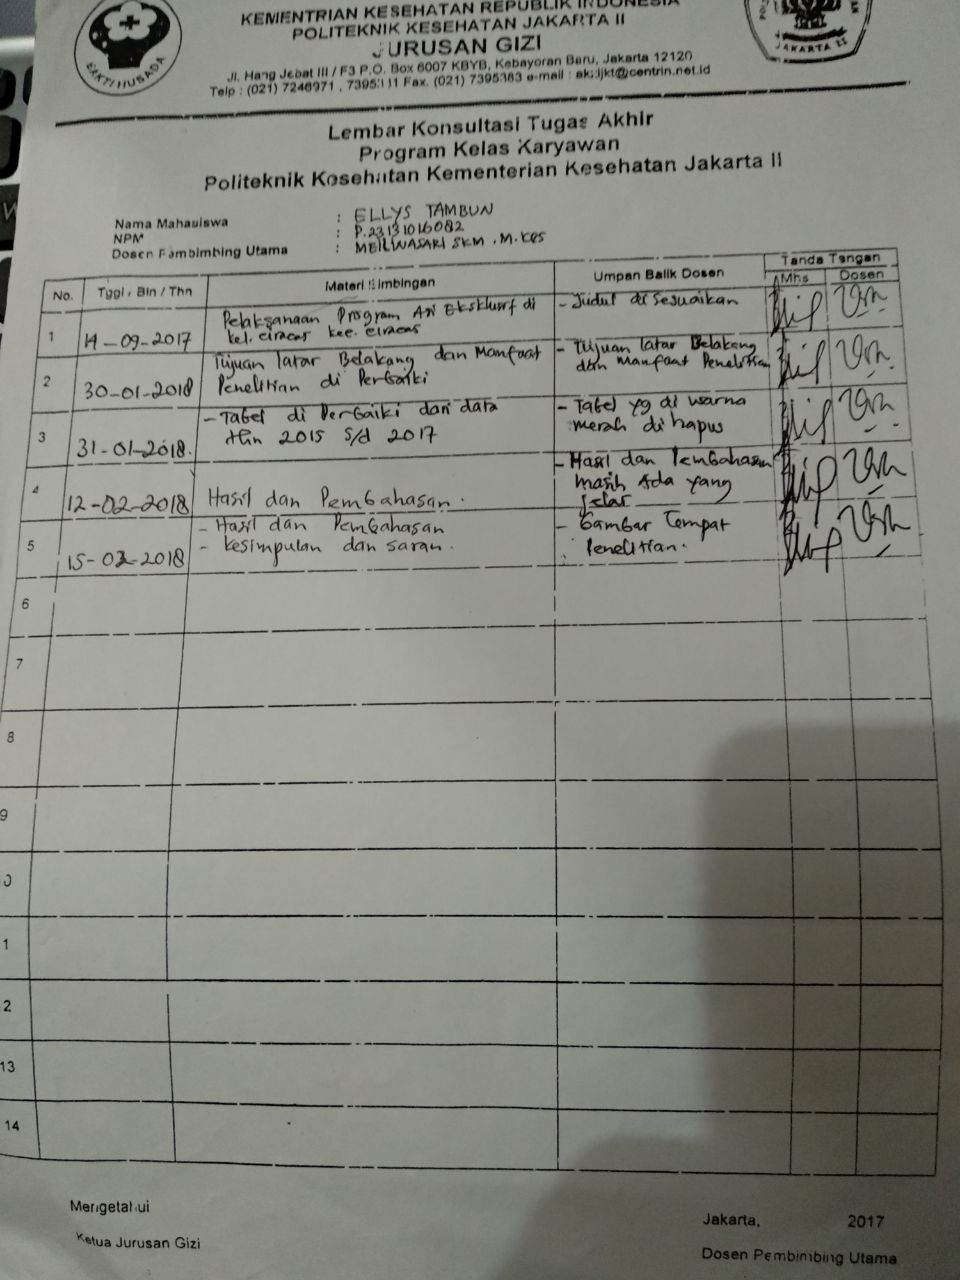 KEMENTRIAN KESEHATAN REPUBLIK INDONESIA
POLITEKNIK KESEHATAN JAKARTA II
JURUSAN GIZI
Jl. Hang Jebat III / F3 P.O. Box 6007 KBYB, Kebayoran Baru, Jakarta 12120
Telp : (021) Fax. (021) e-mail :
BAKTI HUSADA
JAKARTA II
Lembar Konsultasi Tugas Akhir
Program Kelas Karyawan
Politeknik Kesehatan Kementerian Kesehatan Jakarta II
Nama Mahasiswa : ELLYS TAMBUN
NPM : P.23131016082
Dosen Pembimbing Utama : MEILWASARI SKM . M. Kes
No. Tggl / Bln / Thn Materi Bimbingan Umpan Balik Dosen Tanda Tangan
Mhs Dosen
1 14-09-2017 Pelaksanaan Program ASI Eksklusif di
kel. ciracas kec. ciracas
- Judul di sesuaikan
2 30-01-2018 Tujuan latar Belakang dan Manfaat
Penelitian di Perbaiki
- Tujuan latar Belakang
dan manfaat Penelitian
3 31-01-2018. - Tabel di Perbaiki dari data
thn 2015 s/d 2017
- Tabel yg di warna
merah di hapus
4 12-02-2018 Hasil dan Pembahasan.
- Hasil dan Pembahasan
masih Ada yang
5 15-03-2018 - Hasil dan Pembahasan
- kesimpulan dan saran.
- Gambar Tempat
Penelitian.
6
7
8
9
0
1
2
13
14
Mengetahui
Ketua Jurusan Gizi
Jakarta, 2017
Dosen Pembimbing Utama